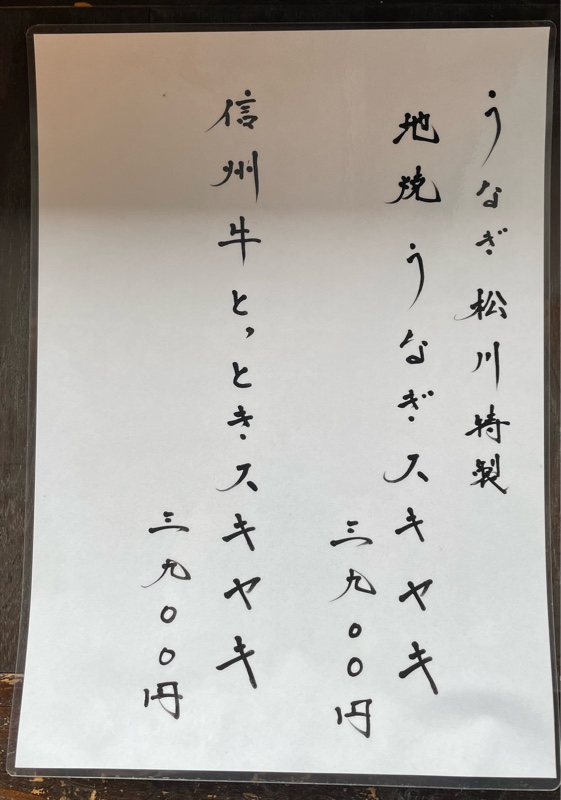 うなぎ松川特製
地焼うなぎスキヤキ
三九〇〇円
信州牛とっときスキヤキ
三九〇〇円